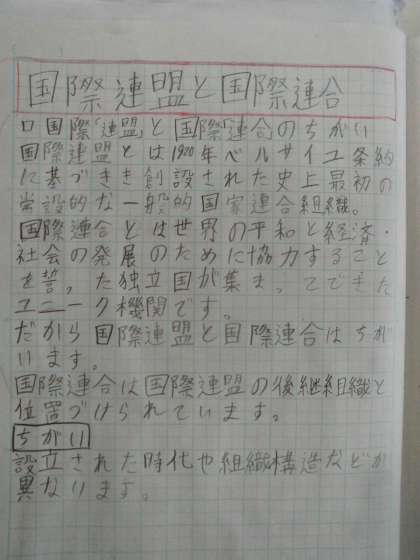 国際連盟と国際連合
ロ国際「連盟」と国際「連合」のちがい
国際連盟とは1920年ベルサイユ条約
に基づきき創設された史上最初の
常設的な一般的国家連合組織。
国際連合とは世界の平和と経済・
社会の発展のために協力すること
を誓った独立国が集まってできた
ユニーク機関です。
だから国際連盟と国際連合はちが
います。
国際連合は国際連盟の後継組織と
位置づけられています。
ちがい
設立された時代や組織構造などが
異なります。